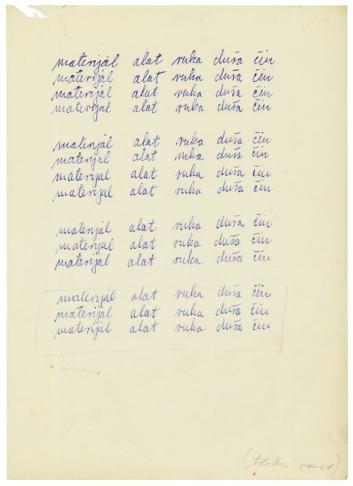 materijal alat ruka duša čin
materijal alat ruka duša čin
materijal alat ruka duša čin
materijal alat ruka duša čin
materijal alat ruka duša čin
materijal alat ruka duša čin
materijal alat ruka duša čin
materijal alat ruka duša čin
materijal alat ruka duša čin
materijal alat ruka duša čin
materijal alat ruka duša čin
materijal alat ruka duša čin
materijal alat ruka duša čin
materijal alat ruka duša čin